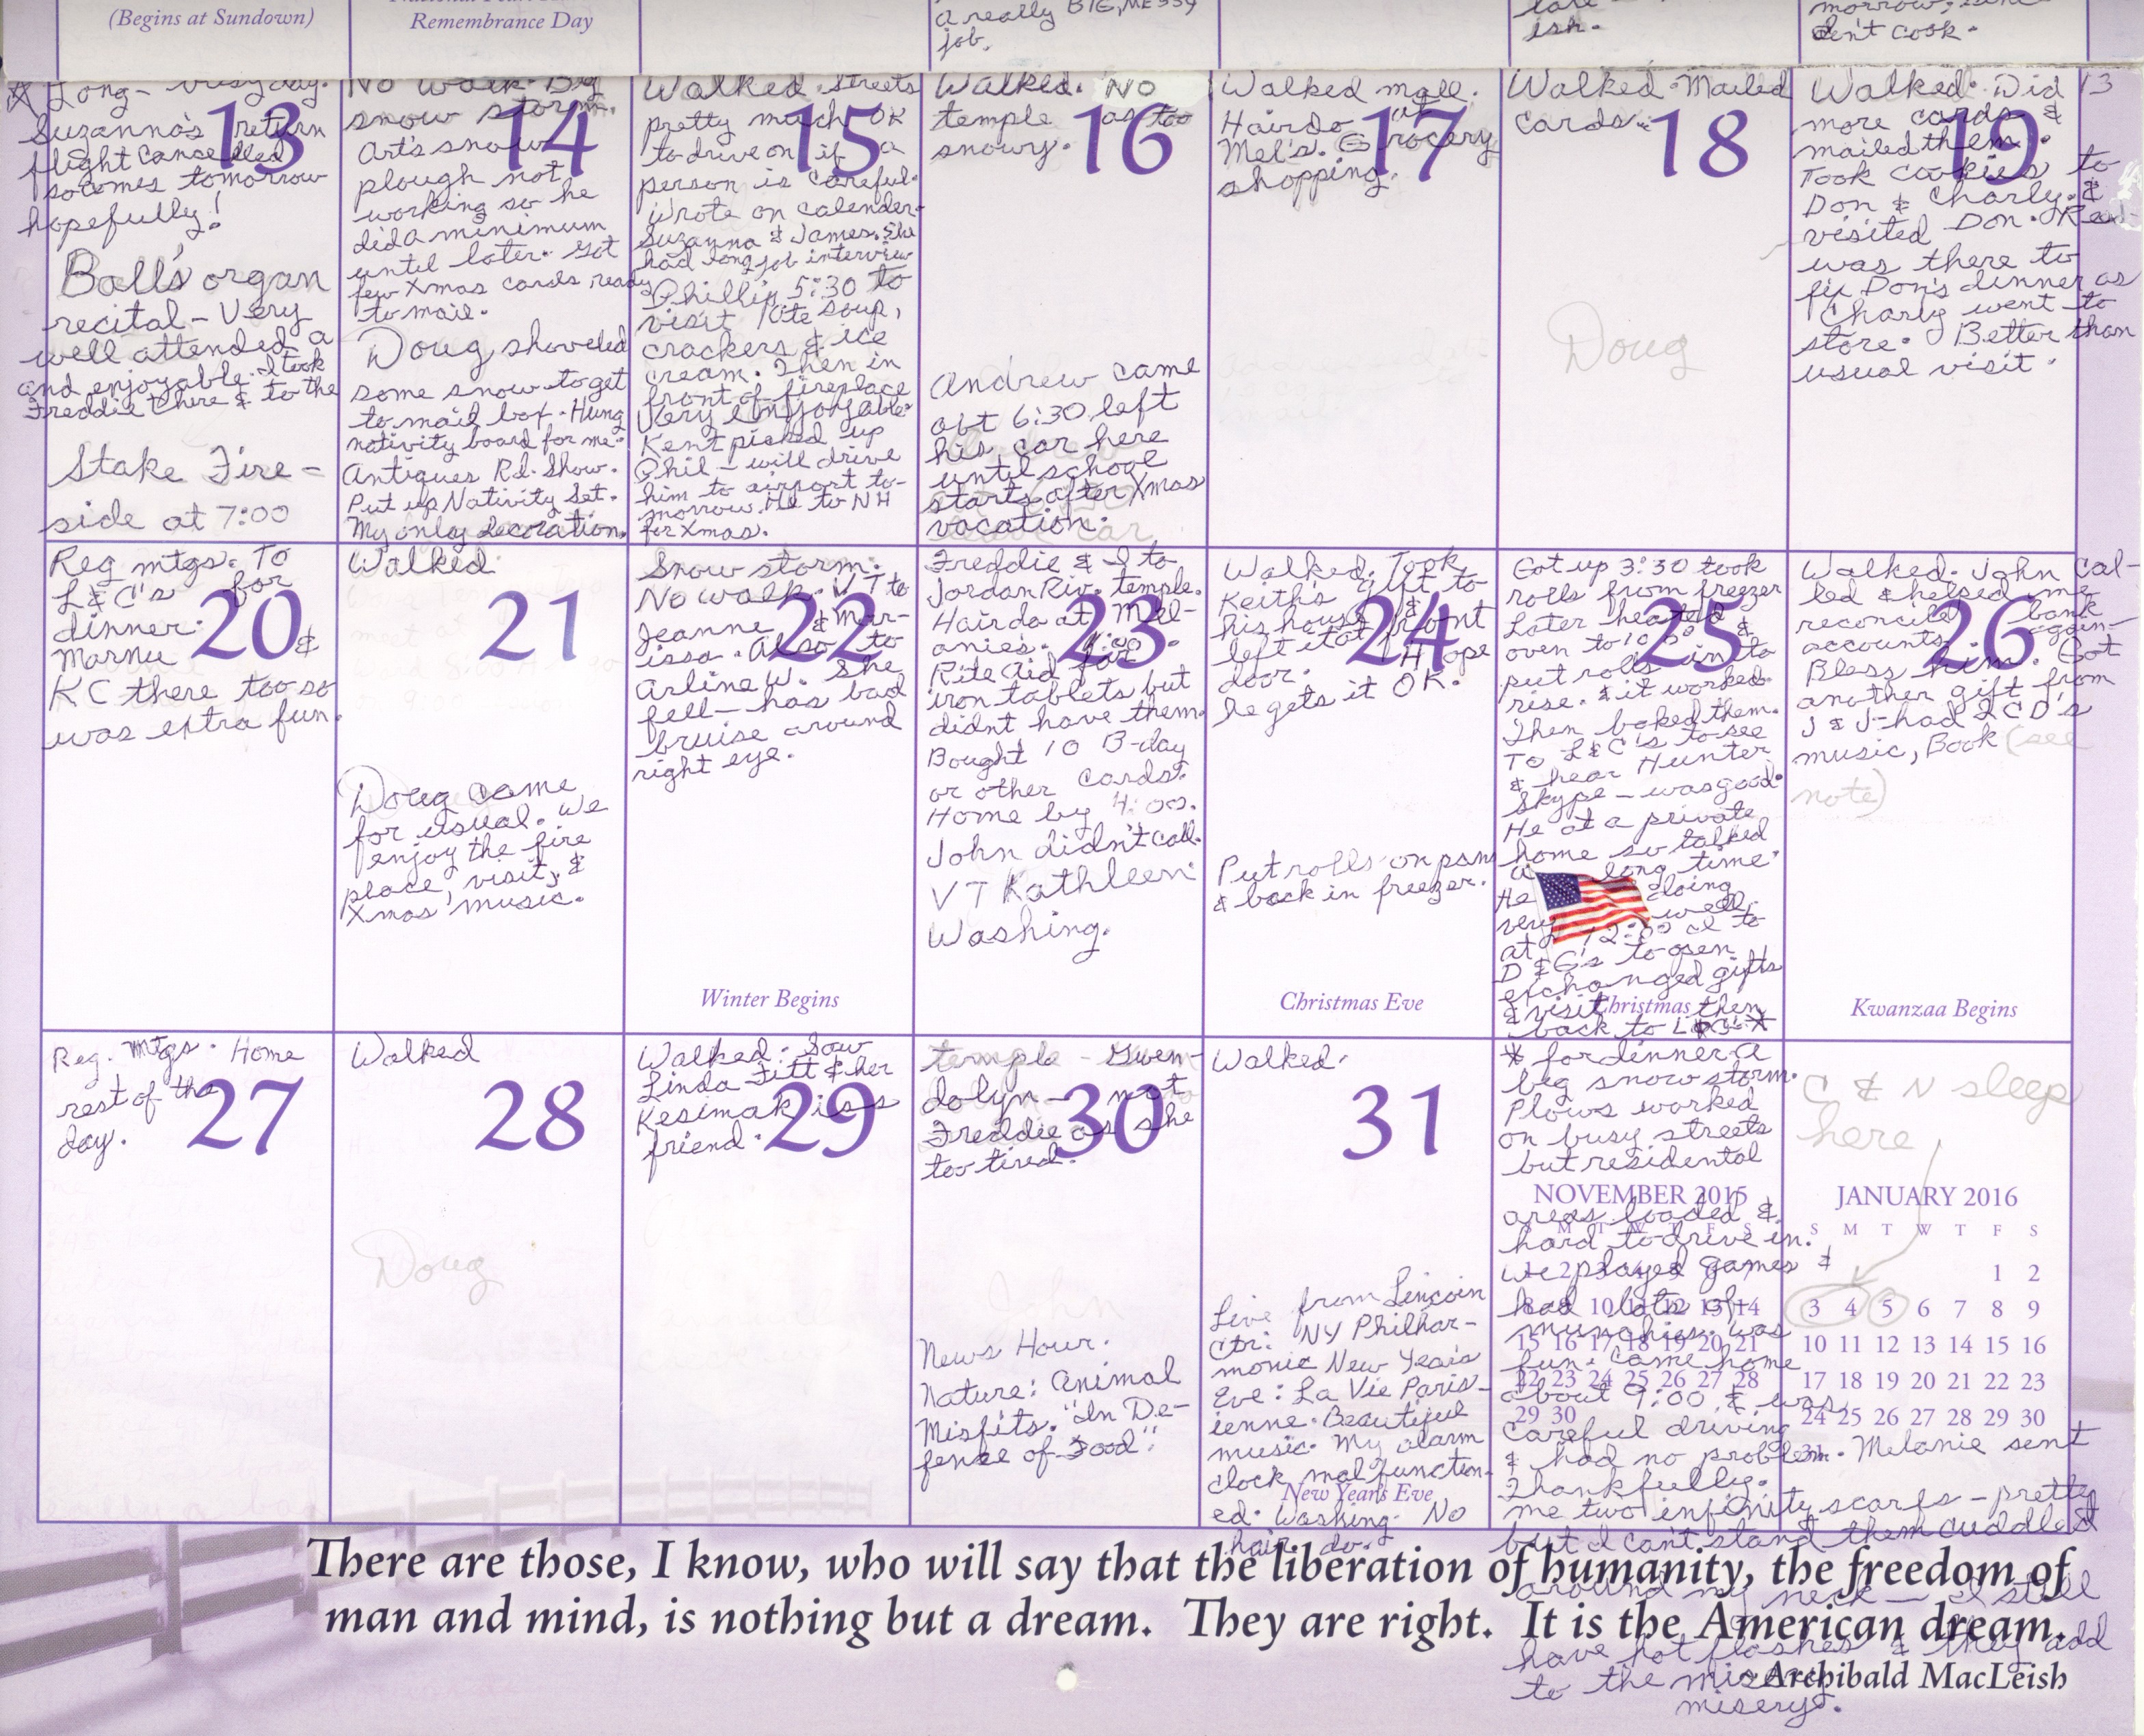 (Begins at Sundown)
Remembrance Day
a really BIG, MESSY
job.
ish.
morrow,
don't cook.
13
Long - busy day.
Suzanna's return
flight cancelled
so comes tomorrow
hopefully!
Ball's organ
recital - Very
well attended
and enjoyable. I took
Freddie there & to the
Stake Fire-
side at 7:00
14
No walk. Big
snow storm.
Art's snow
plough not
working so he
did a minimum
until later. Got
few Xmas cards ready
to mail.
Doug shoveled
some snow to get
to mail box. Hung
nativity board for me.
Antiques Rd. Show.
Put up Nativity Set.
My only decoration.
15
Walked. Streets
pretty much OK
to drive on if a
person is careful.
Wrote on calender-
Suzanna & James. She
had long job interview
Phillip 5:30 to
visit. Rite soup,
crackers & ice
cream. Then in
front of fireplace
Very enjoyable.
Kent picked up
Phil - will drive
him to airport to-
morrow. He to NH
for Xmas.
16
Walked. No
temple as too
snowy.
Andrew came
abt 6:30 left
his car here
until school
starts after Xmas
vacation.
17
Walked mall.
Hairdo at
Mel's. Grocery
shopping.
18
Walked. Mailed
cards.
Doug
19
13
Walked. Did
more cards &
mailed them.
Took cookies to
Don & Charly. &
visited Don.
was there to
fix Don's dinner as
Charly went to
store. Better than
usual visit.
20
Reg mtgs. To
L & C's for
dinner.
Marnie &
KC there too so
was extra fun.
21
Walked.
Doug came
for usual. We
enjoy the fire
place, visit, &
Xmas music.
22
Snow storm.
No walk. VT to
Jeanne & Mar-
issa. Also to
Arline W. She
fell - has bad
bruise around
right eye.
Winter Begins
23
Freddie & I to
Jordan Riv. temple.
Hairdo at Mel-
anie's.
Rite Aid for
iron tablets but
didnt have them.
Bought 10 B-day
or other cards.
Home by 4:00.
John didn't call.
VT Kathleen
Washing.
24
Walked. Took
Keith's gift to
his house &
left it at front
door. I Hope
he gets it OK.
Put rolls on pans
& back in freezer.
Christmas Eve
25
Got up 3:30 took
rolls from freezer
Later heated
oven to &
put rolls in to
rise. & it worked.
Then baked them.
To L & C's to see
& hear Hunter
Skype - was good.
He at a private
home so talked
a long time.
He doing
very well,
at 12:00 I to
D & G's to open
exchanged gifts
& visit then
back to L & C's *
Christmas
26
Walked. John cal-
led & helped me
reconcile bank
accounts again-
Bless him. Got
another gift from
J & J - had 2 CD's
music, Book (see
note)
Kwanzaa Begins
27
Reg. mtgs. Home
rest of the
day.
28
Walked
Doug
29
Walked. Saw
Linda Fitt & her
friend.
30
temple - Gwen-
dolyn - not
Freddie as she
too tired.
John
News Hour.
Nature: Animal
Misfits. "In De-
fense of Food".
31
Walked.
Live from Lincoln
Ctr: NY Philhar-
monic New Years
Eve: La Vie Paris-
ienne. Beautiful
music. My alarm
clock malfunction-
ed. Washing. No
hair do.
New Year's Eve
* for dinner. A
big snow storm.
Plows worked
on busy streets
but residental
areas loaded &
hard to drive in.
We played games &
had lots of
munchies. Was
fun. Came home
about 9:00 & was
careful driving
& had no problem. Melanie sent
Thankfully.
me two infinity scarfs - pretty
but I can't stand them cuddled
around my neck - I still
have hot flashes & they add
to the misery
misery.
NOVEMBER 2015
S M T W T F S
1 2 3 4 5 6 7
8 9 10 11 12 13 14
15 16 17 18 19 20 21
22 23 24 25 26 27 28
29 30
C & N sleep
here
JANUARY 2016
S M T W T F S
1 2
3 4 5 6 7 8 9
10 11 12 13 14 15 16
17 18 19 20 21 22 23
24 25 26 27 28 29 30
31
There are those, I know, who will say that the liberation of humanity, the freedom of
man and mind, is nothing but a dream. They are right. It is the American dream.
-Archibald MacLeish